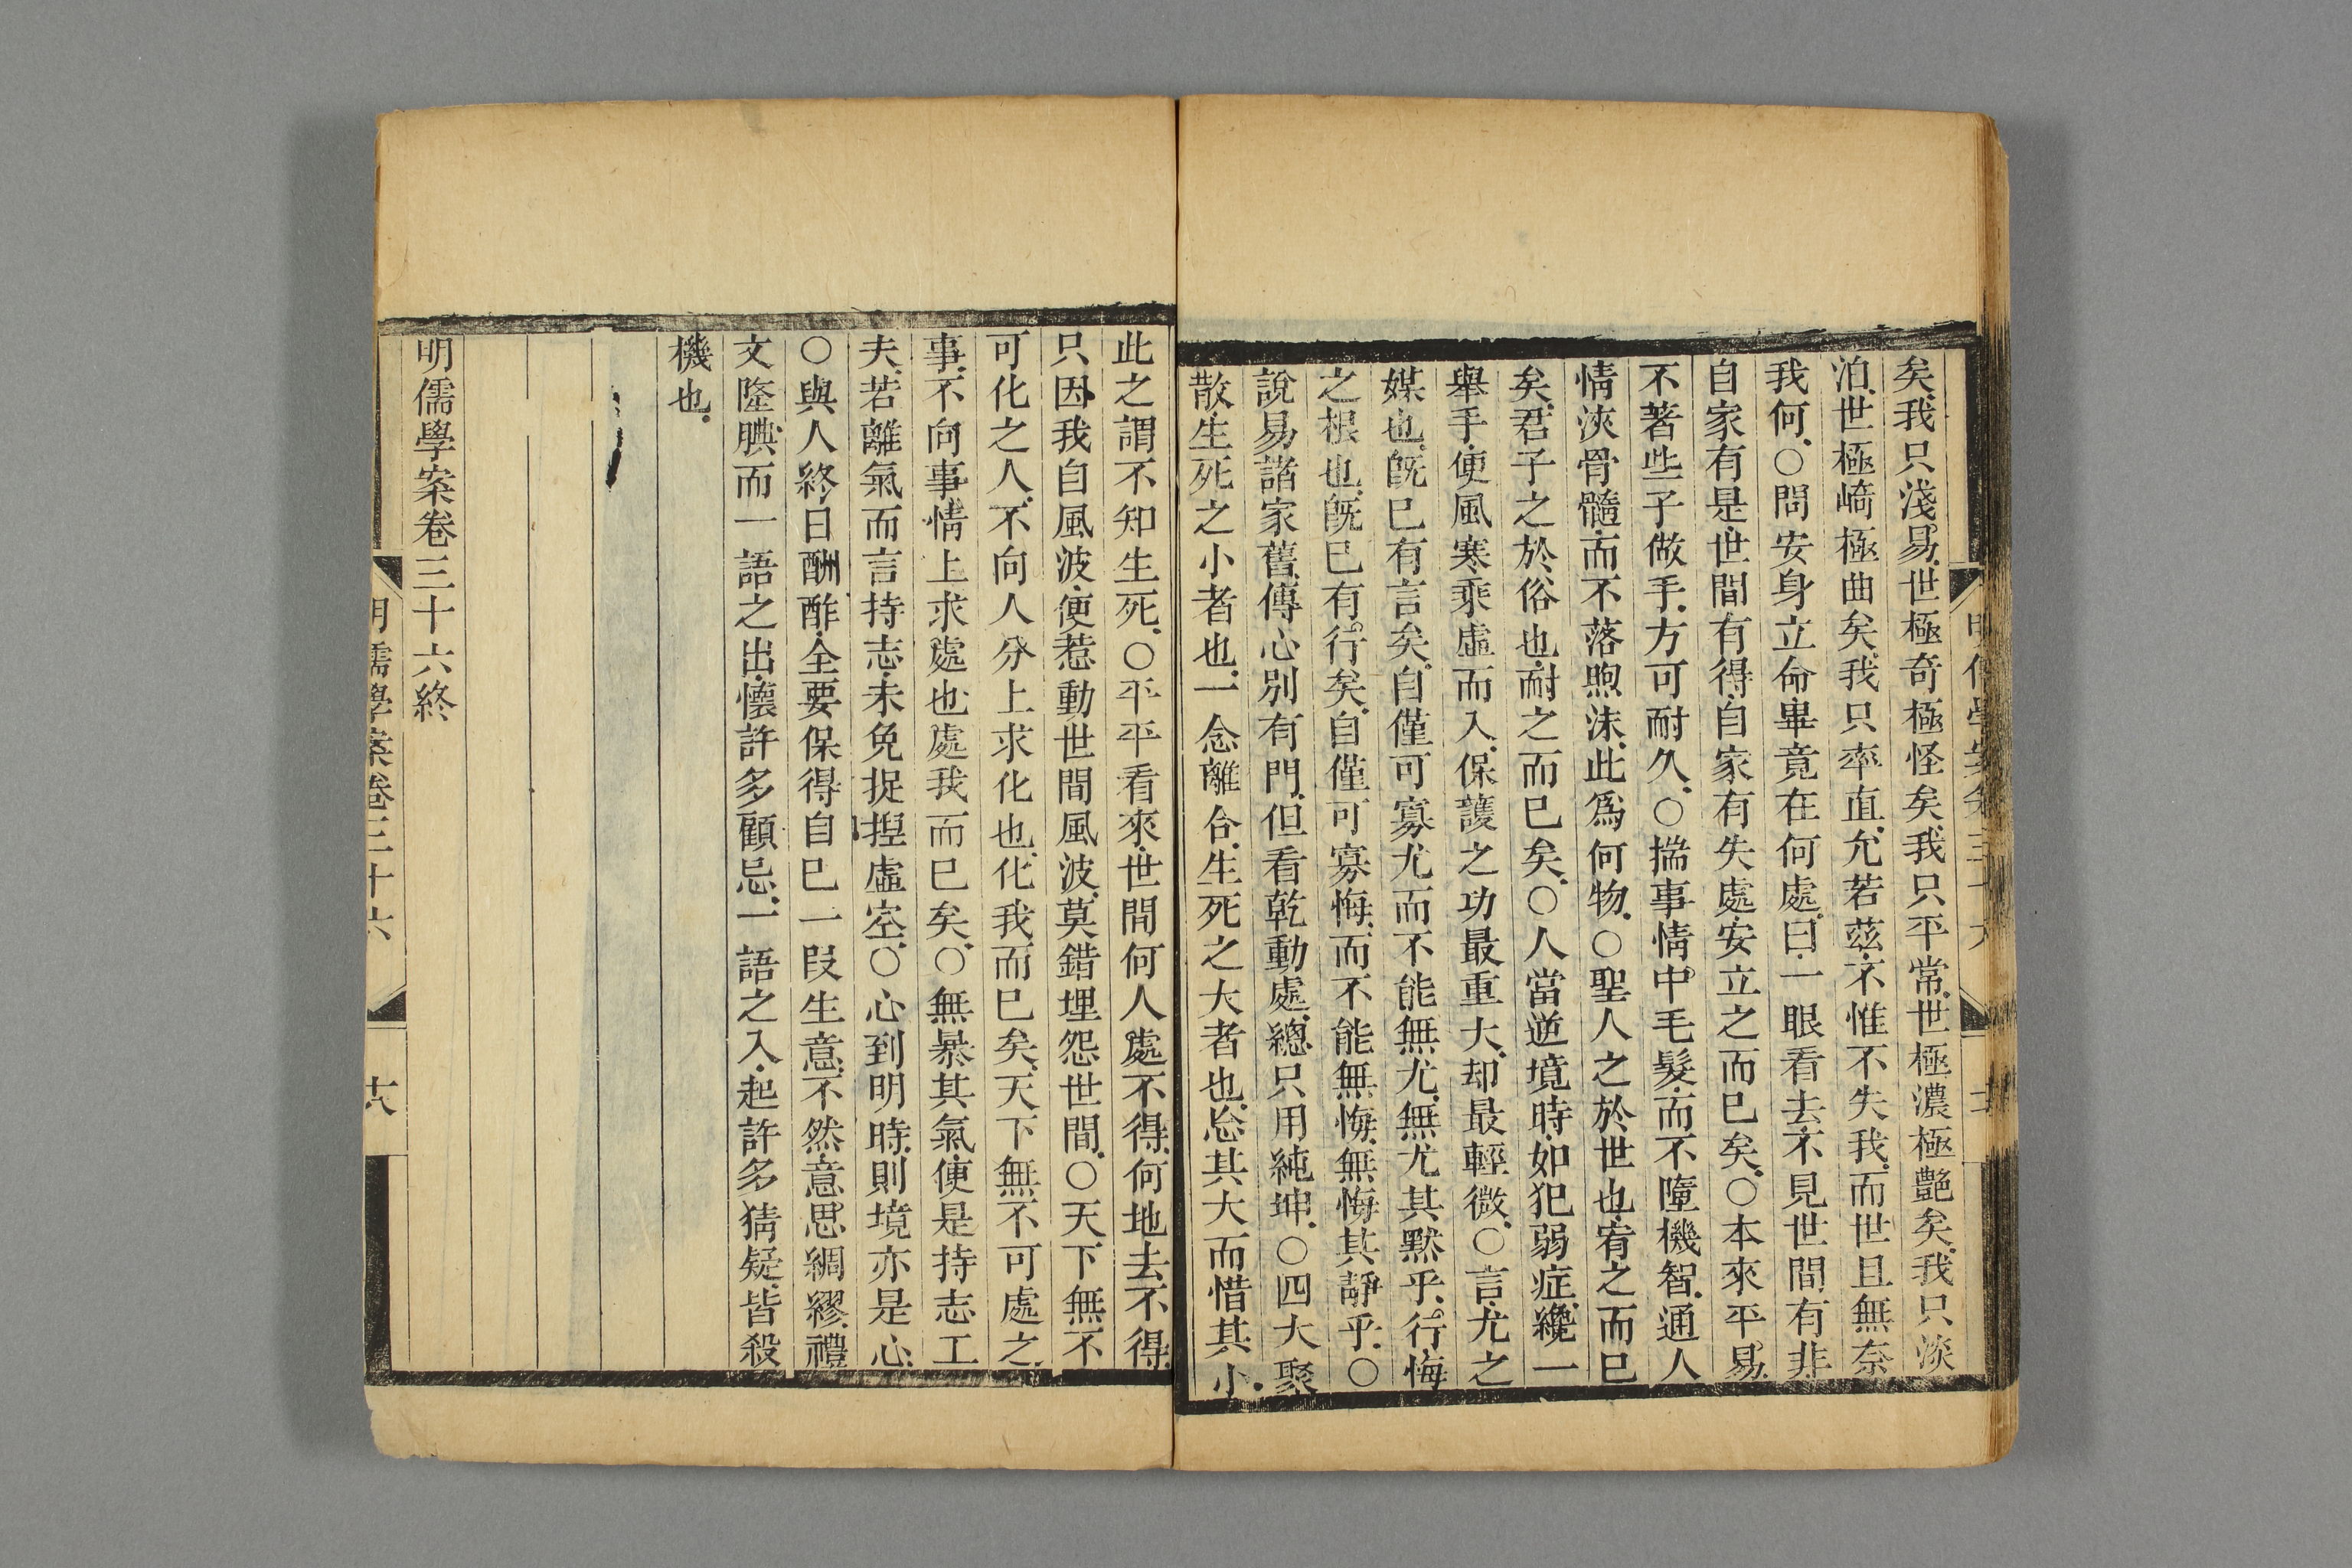 矣我只淺易世極奇極怪矣我只平常世極濃極艶矣我只淡
泊世極崎極曲矣我只率直允若茲不惟不失我而世且無奈
我何○問安身立命畢竟在何處曰一眼看去不見世間有非
自家有是世間有得自家有失處安立之而已矣○本來平易
不著些子做手方可耐久○揣事情中毛髮而不墮機智通人
情浹骨髓而不落煦沫此爲何物○聖人之於世也宥之而已
矣君子之於俗也耐之而已矣○人當逆境時如犯弱症纔一
舉手便風寒乘虛而入保護之功最重大却最輕微○言尤之
媒也旣已有言矣自僅可寡尤而不能無尤無尤其黙乎行悔
之根也旣已有行矣自僅可寡悔而不能無悔無悔其靜乎○
說易諸家舊傳心別有門但看乾動處總只用純坤○四大聚
散生死之小者也一念離合生死之大者也忘其大而惜其小
此之謂不知生死○平平看來世間何人處不得何地去不得
只因我自風波便惹動世間風波莫錯埋怨世間○天下無不
可化之人不向人分上求化也化我而已矣天下無不可處之
事不向事情上求處也處我而已矣○無暴其氣便是持志工
夫若離氣而言持志未免捉揑虛空○心到明時則境亦是心
○與人終日酬酢全要保得自已一段生意不然意思綢繆禮
文隆腆而一語之出懷許多顧忌一語之入起許多猜疑皆殺
機也
明儒學案卷三十六終
明儒學案卷三十六